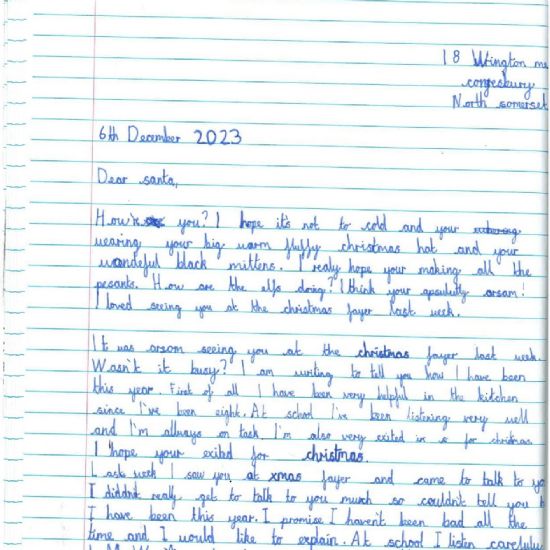 18 Wrington
congresbury
North somerset
6th December 2023
Dear santa,
How're you? I hope it's not to cold and your
wearing your big warm fluffy christmas hat and your
wondeful black mittens. I realy hope your making all the
pesants. How are the elfs doing? I think your apsulutly orsam!
I loved seeing you at the christmas fayer last week.
It was orsom seeing you at the christmas fayer last week.
Wasn't it busy? I am writing to tell you how I have been
this year. First of all I have been very helpful in the kitchen
since I've been eight. At school I've been listening very well
and I'm allways on task. I'm also very exited for christmas.
I hope your exited for christmas.
Last week I saw you at xmas fayer and came to talk to
I diddn't realy get to talk to you much so couldn't tell you
I have been this year. I promise I haven't been bad all the
time and I would like to explain. At school I listen carefully